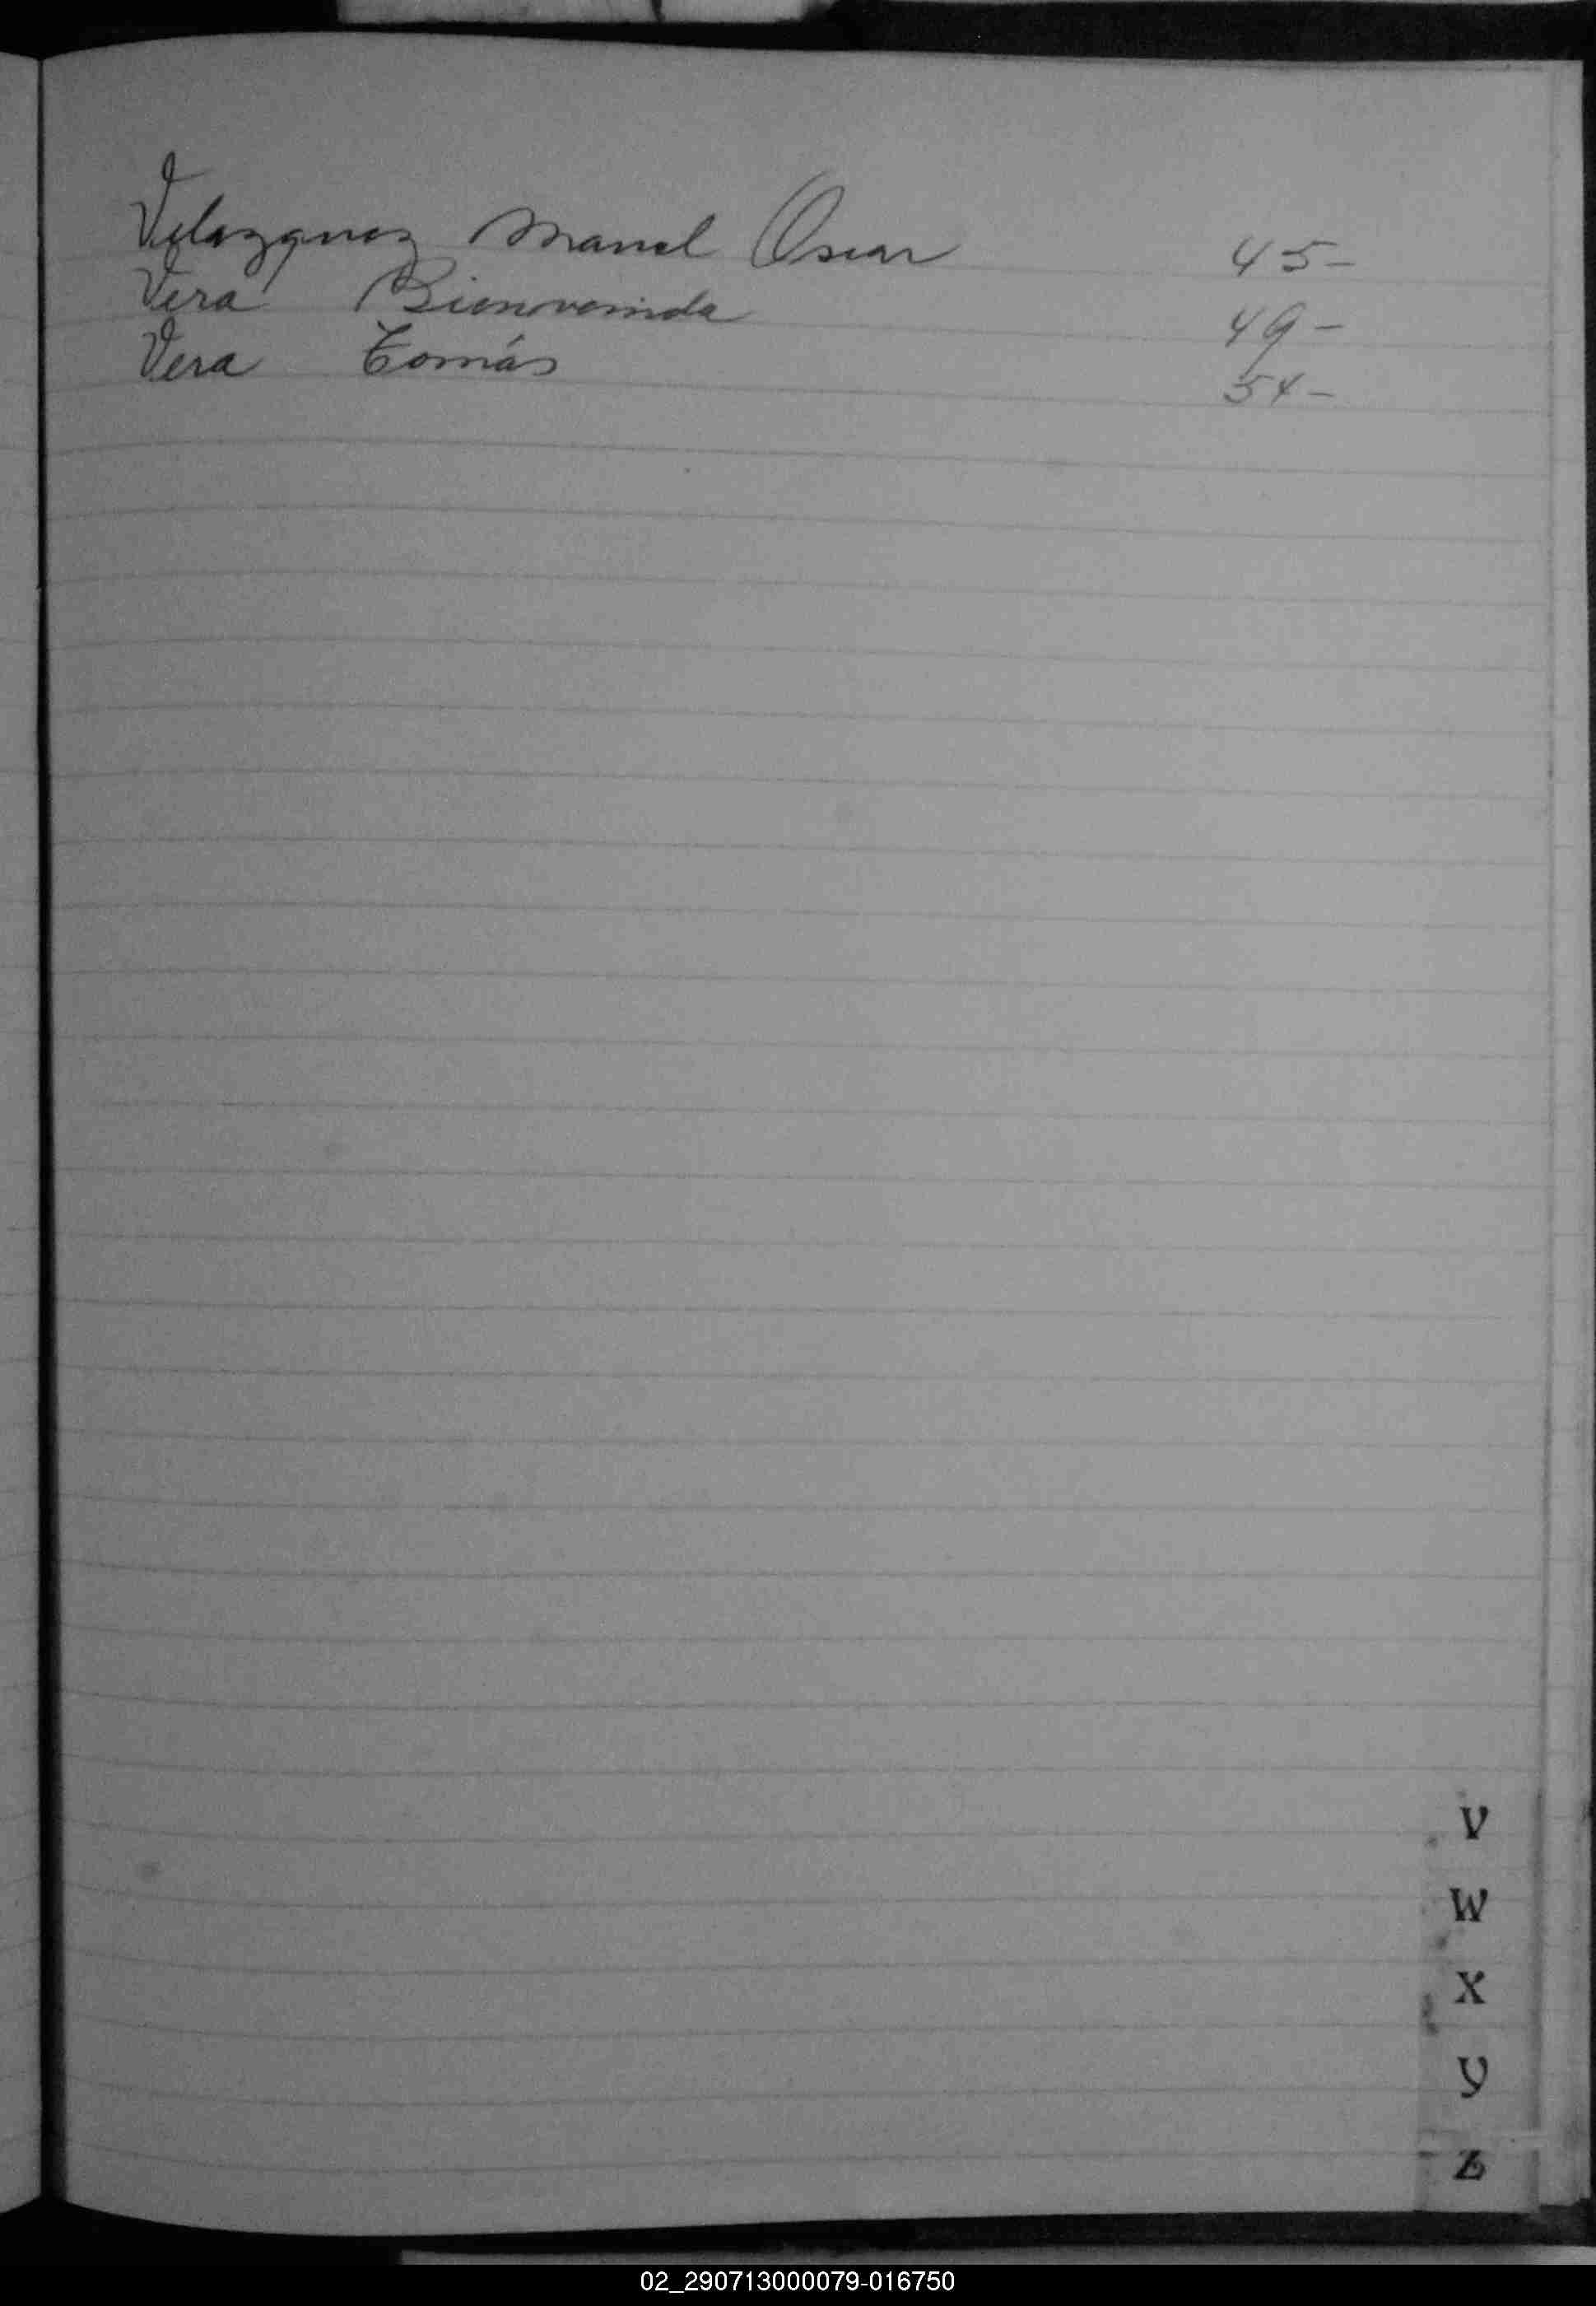 Velazquez Manuel Oscar 45-
Vera Bienvenida 49-
Vera Tomás 54-
V
W
X
Y
Z
02_290713000079-016750